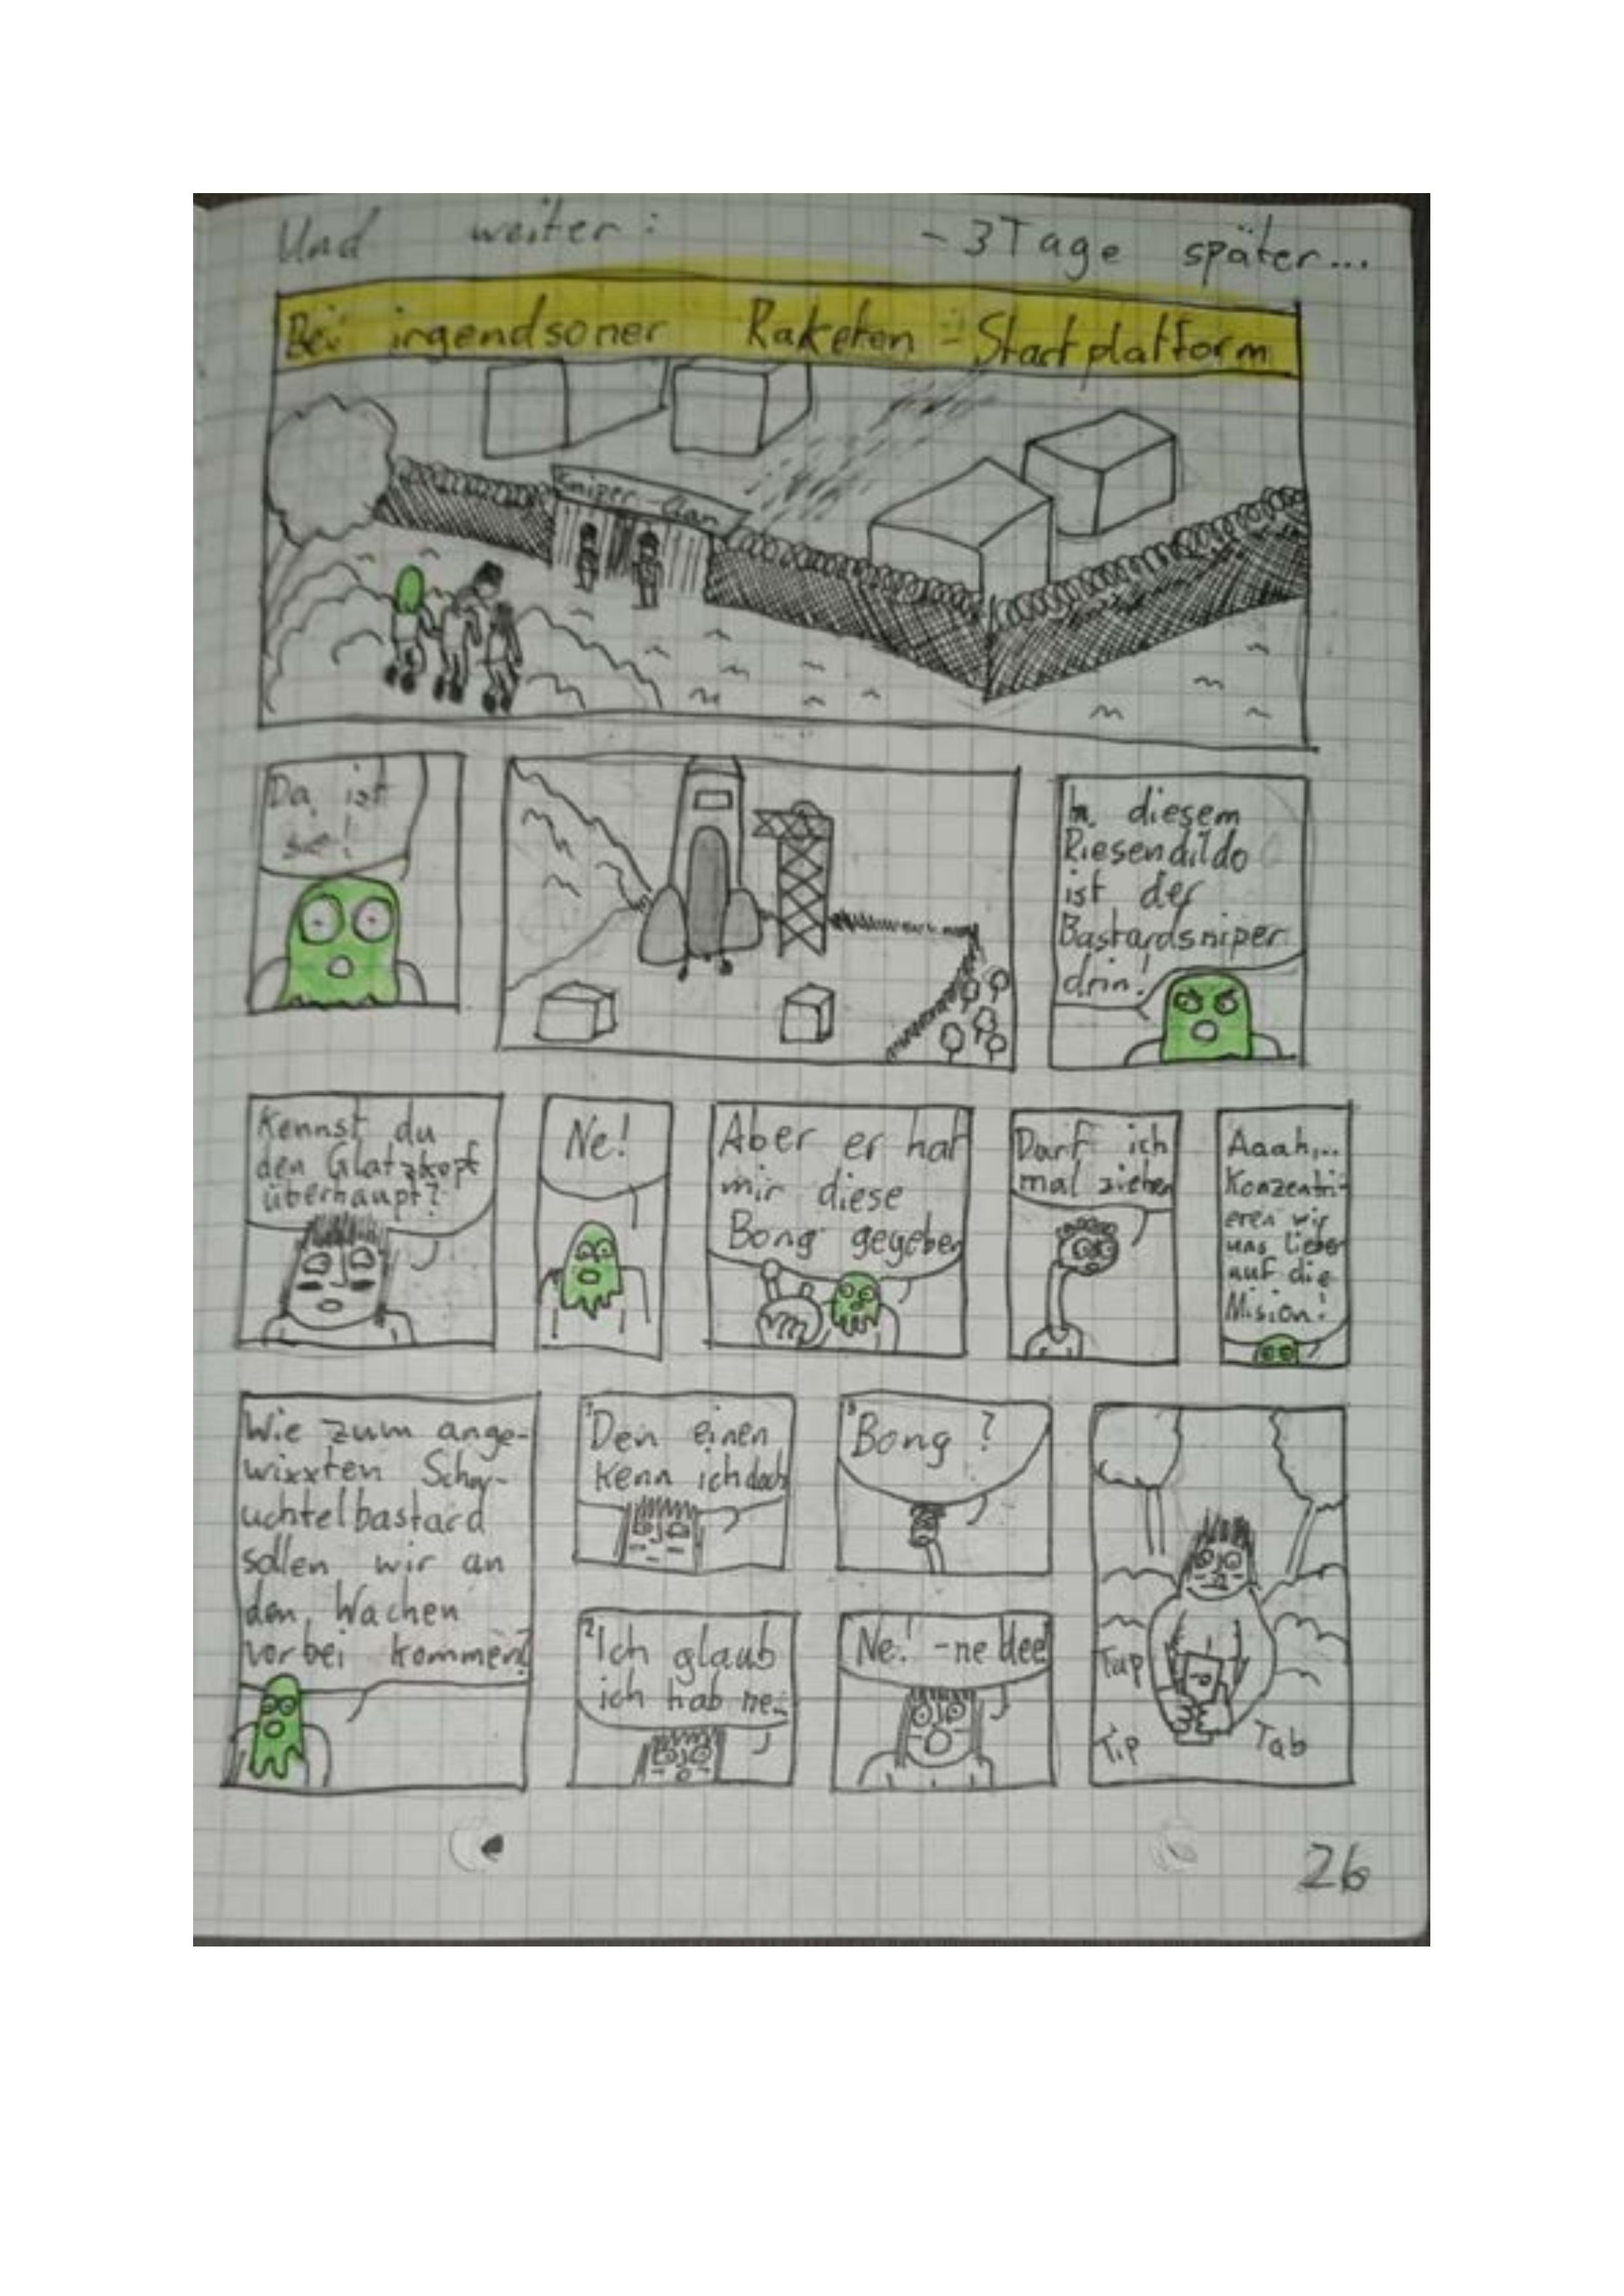 Und weiter: - 3 Tage später...
Bei irgendsoner Raketen-Startplatform
Sniper-Clan
Da ist
sie!
In diesem
Riesendildo
ist der
Bastardsniper
drin!
Kennst du
den Glatzkopf
überhaupt?
Ne!
Aber er hat
mir diese
Bong gegeben
Darf ich
mal ziehen
Aaah,..
Konzentri-
eren wir
uns lieber
auf die
Mision!
Wie zum ange-
wixxten Schw-
uchtelbastard
sollen wir an
den Wachen
vorbei kommen?
1 Den einen
kenn ich doch
2 Ich glaub
ich hab ne..
3 Bong?
Ne! -ne Idee!
Tap
Tip
Tab
26